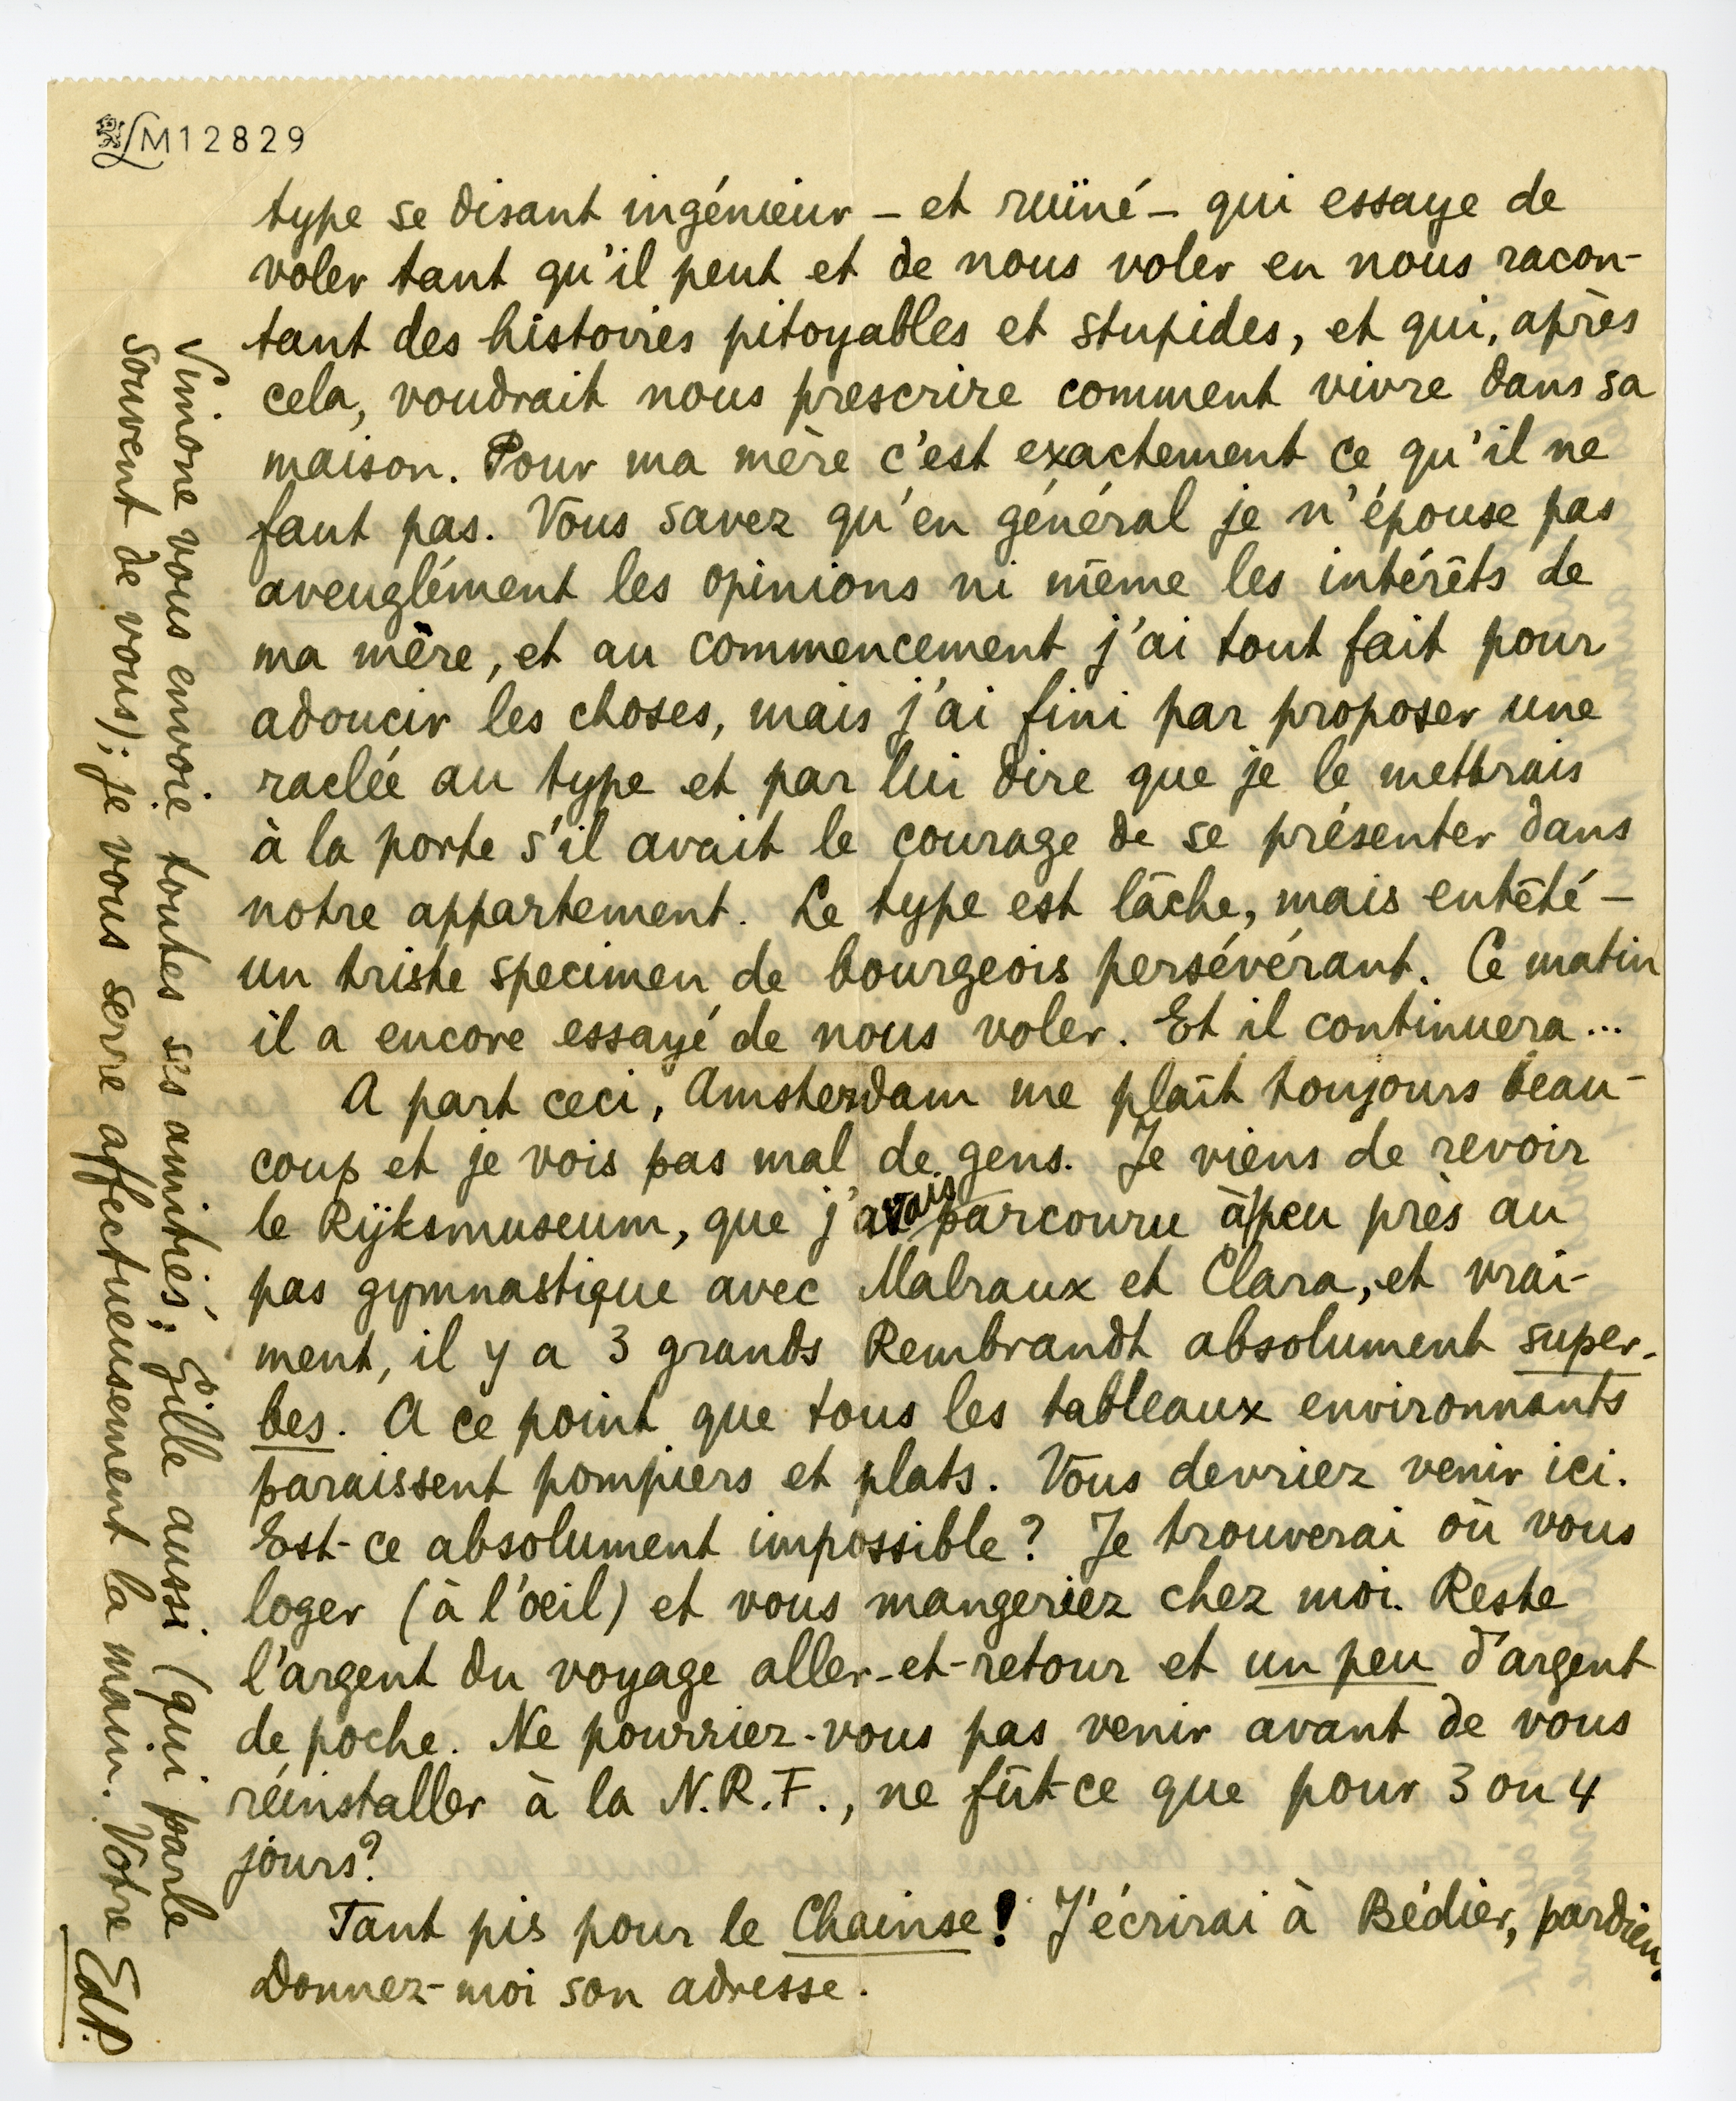 LM12829
type se disant ingénieur – et ruïné – qui essaye de
voler tant qu'il peut et de nous voler en nous racon-
tant des histoires pitoyables et stupides, et qui, après
cela, voudrait nous prescrire comment vivre dans sa
maison. Pour ma mère c'est exactement ce qu'il ne
faut pas. Vous savez qu'en général je n'épouse pas
aveuglément les opinions ni même les intérêts de
ma mère, et au commencement j'ai tout fait pour
adoucir les choses, mais j'ai fini par proposer une
raclée au type et par lui dire que je le mettrais
à la porte s'il avait le courage de se présenter dans
notre appartement. Le type est lâche, mais entêté –
un triste specimen de bourgeois persévérant. Ce matin
il a encore essayé de nous voler. Et il continuera...
A part ceci, Amsterdam me plaît toujours beau-
coup et je vois pas mal de gens. Je viens de revoir
le Rijksmuseum, que j'avais parcouru à peu près au
pas gymnastique avec Malraux et Clara, et vrai-
ment, il y a 3 grands Rembrandt absolument super-
bes. A ce point que tous les tableaux environnants
paraissent pompiers et plats. Vous devriez venir ici.
Est-ce absolument impossible? Je trouverai où vous
loger (à l'oeil) et vous mangeriez chez moi. Reste
l'argent du voyage aller-et-retour et un peu d'argent
de poche. Ne pourriez-vous pas venir avant de vous
réinstaller à la N.R.F., ne fût-ce que pour 3 ou 4
jours?
Tant pis pour le Chainse! J'écrirai à Bédier, pardieu.
Donnez-moi son adresse.
Simone vous envoie toutes ses amitiés; Gille aussi (qui parle
souvent de vous); je vous serre affectueusement la main. Votre EdP.